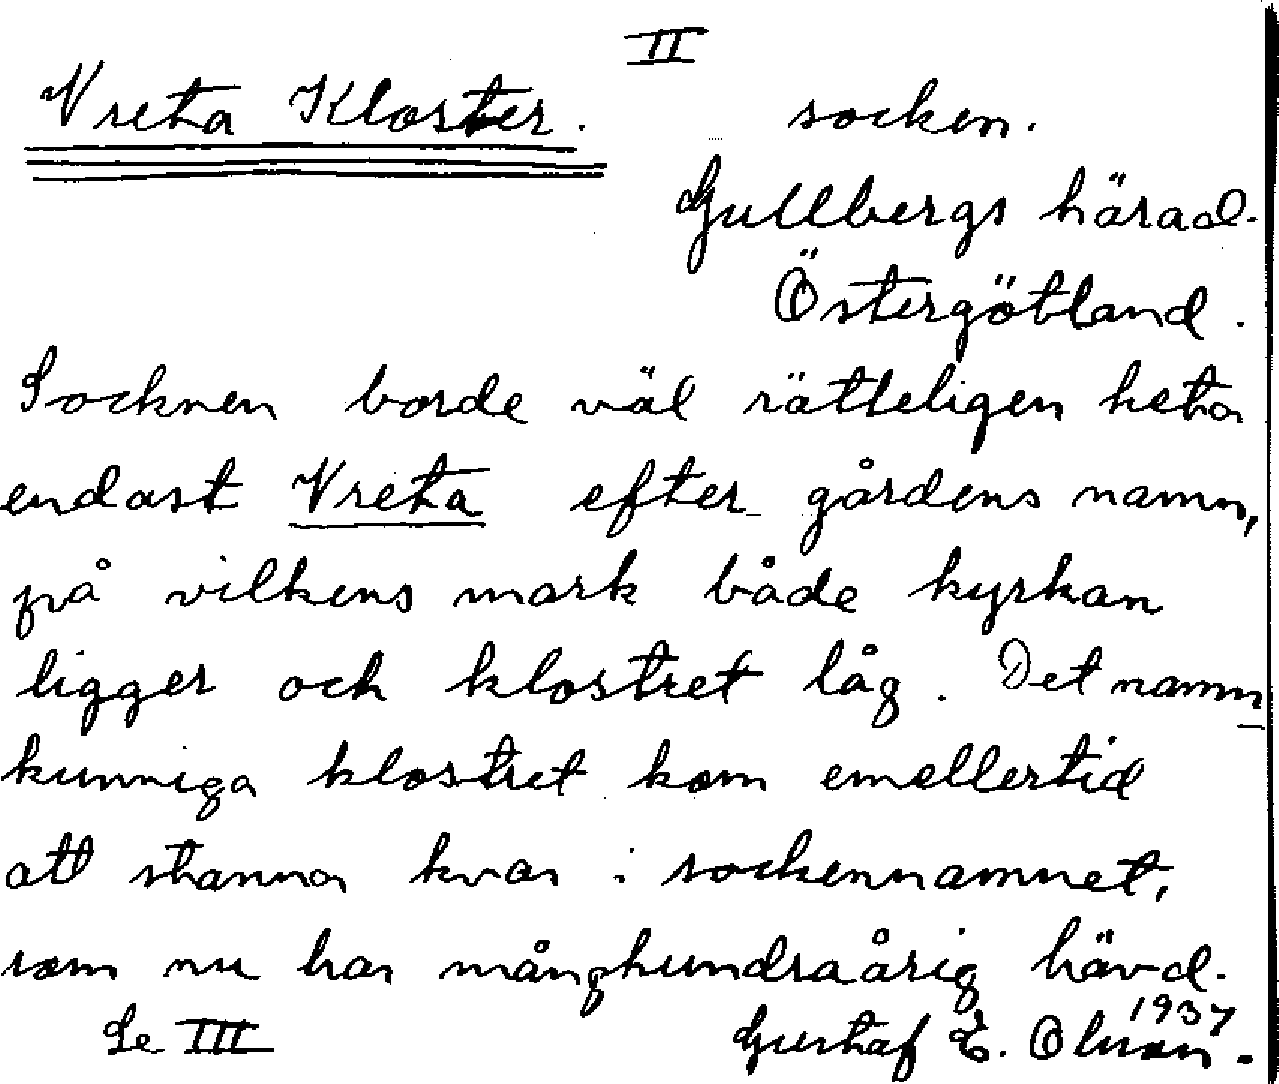 II
Vreta Kloster. socken.
Gullbergs härad.
Östergötland.
Socknen borde väl rätteligen heta
endast Vreta efter gårdens namn,
på vilkens mark både kyrkan
ligger och klostret låg. Det namn
kunniga klostret kom emellertid
att stanna kvar i sockennamnet,
som nu har månghundraårig hävd.
Se III Gustaf E. Olsson. 1937